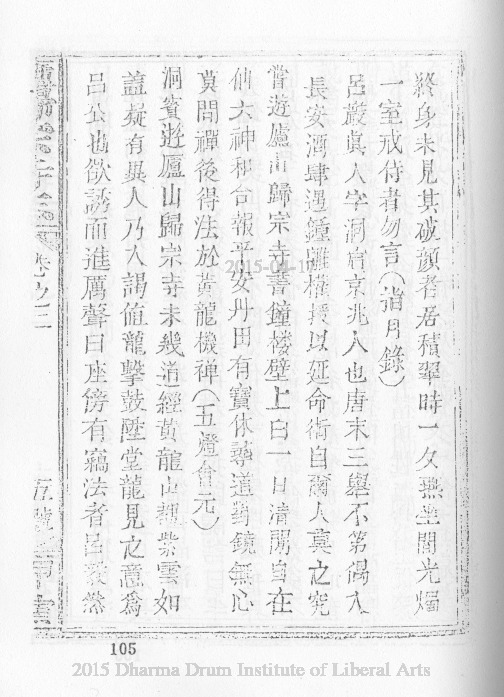 終身未見其破顏者居積翠時一夕燕坐間光燭
一室戒侍者勿言(指月錄)
呂巖真人字洞賓京兆人也唐末三舉不第偶入
長安酒肆遇鍾離權授以延命術自爾人莫之究
嘗遊廬山歸宗寺書鐘樓壁上曰一日清閒自在
仙六神和合報平安丹田有寶休尋道對鏡無心
莫問禪後得法於黃龍機禪(五燈會元)
洞賓遊廬山歸宗寺未幾道經黃龍山覩紫雲如
蓋疑有異人乃入謁值龍擊鼓陞堂龍見之意為
呂公也欲誘而進厲聲曰座傍有竊法者呂毅然
卷之三
105
2015-04-1
2015 Dharma Drum Institute of Liberal Arts